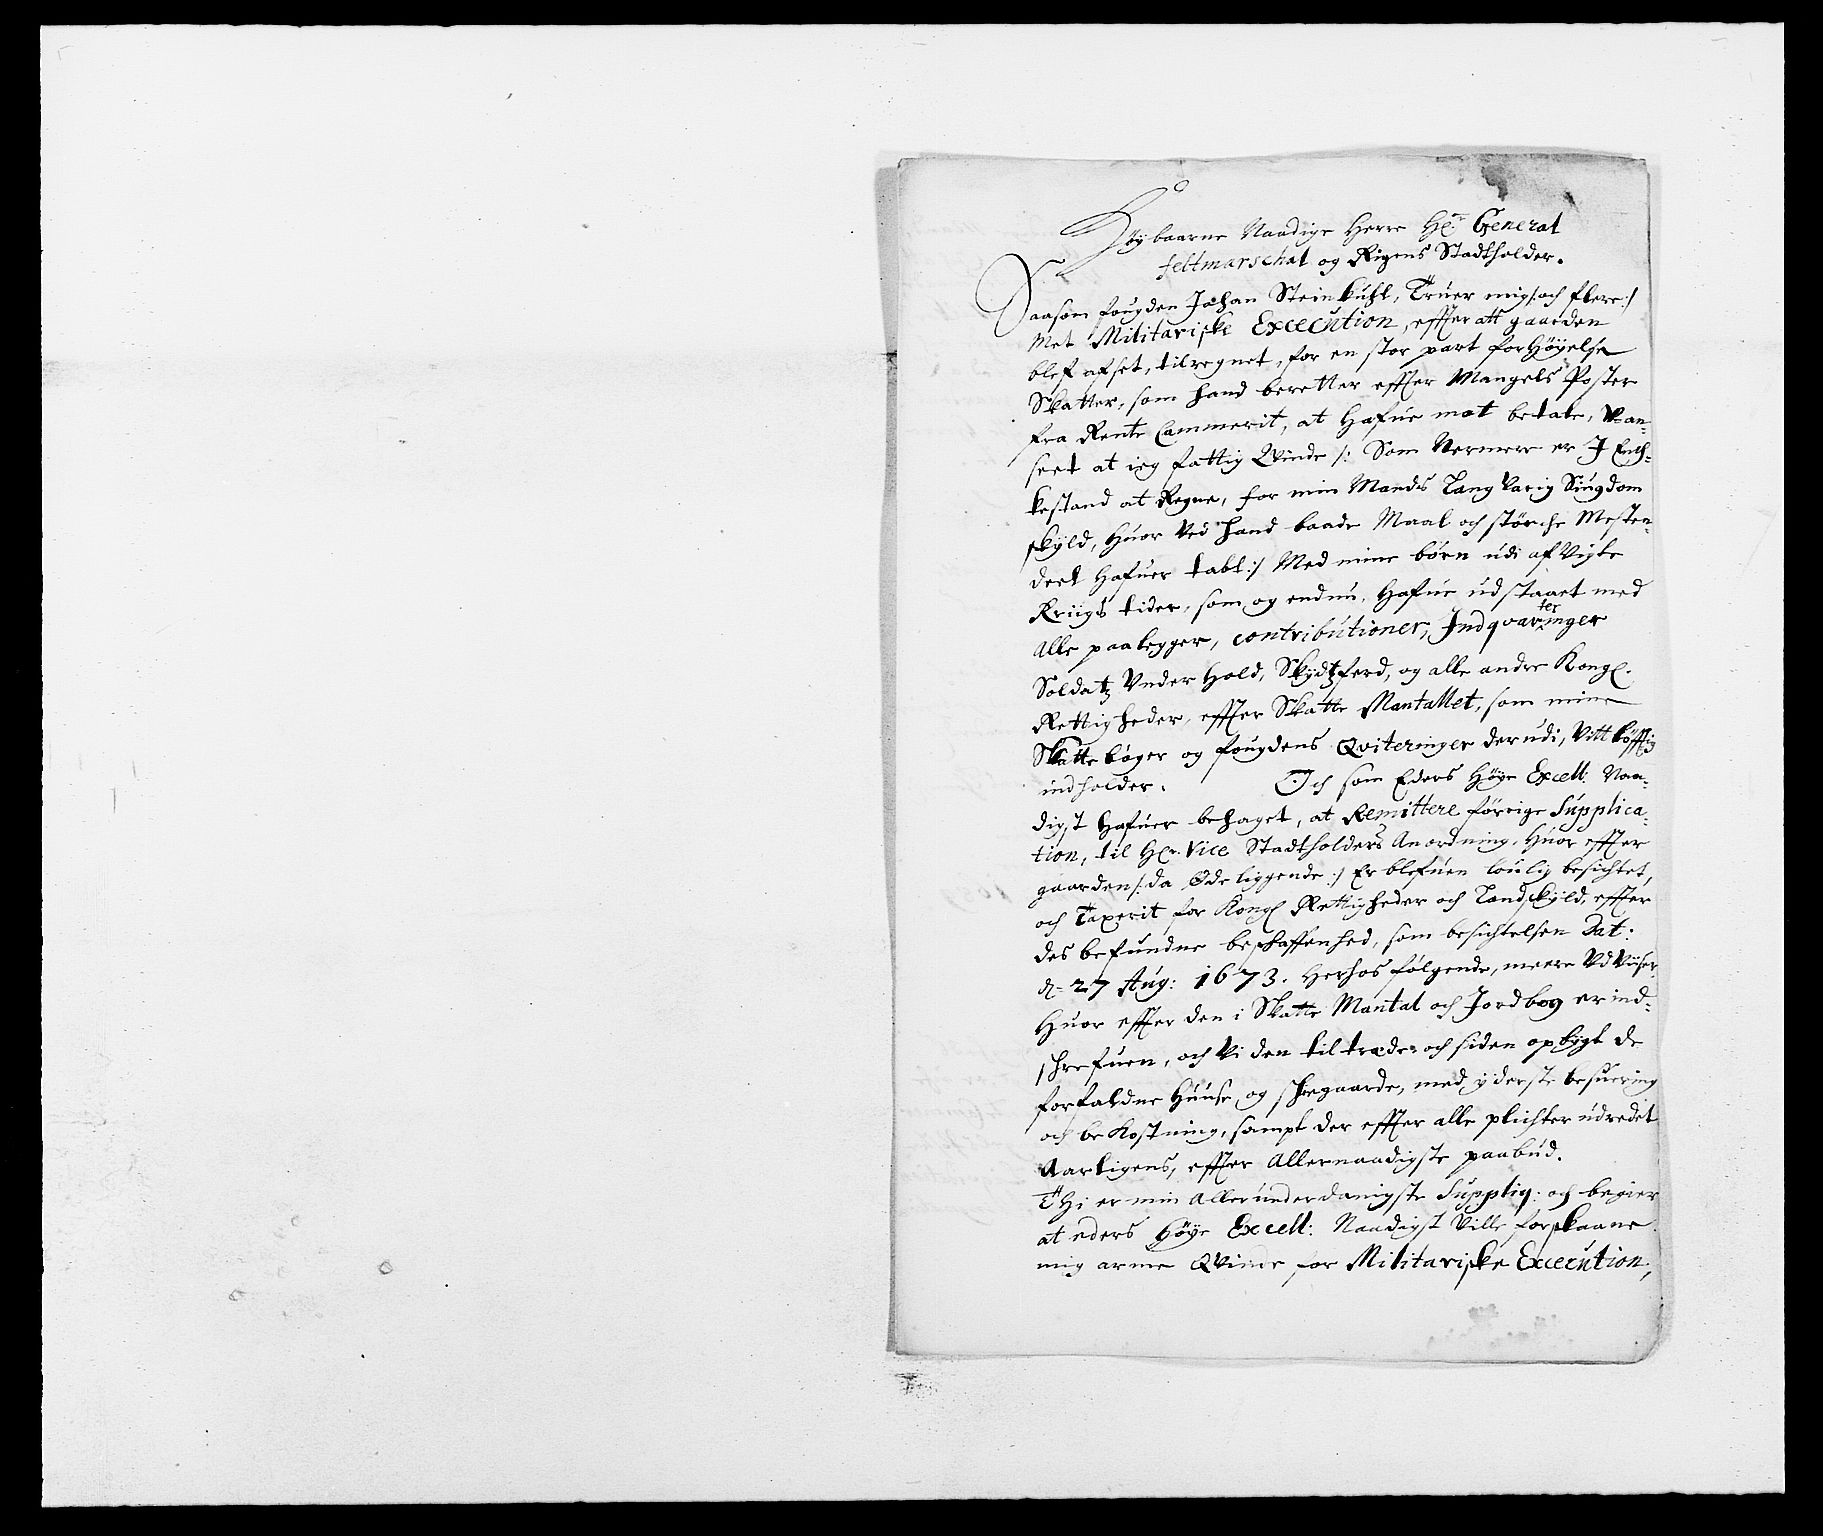 Høybaarne Naadige Herre Hr. General
feltmarschal og Rigens Stadtholder.
Saasom fougden Johan Steinkuhl, Truer mig/: och flere:/
Met Militariske Excecution, effter att gaarden
blef afset, tilregnet, for en stor part forHøyelse
Skatter, som hand beretter effter Mangels Poster
fra Rente Cammerit, at Hafue mot betale, Van-
seet at ieg fattig Qvinde /: Som Nermere er J Ench-
kestand at Regne, for min Mands Langvarig Siugdom
skyld, Huor Ved hand baade Maal och størche Mesten-
deel Hafuer tabt:/ Med mine børn udi afvigte
Kriigs tider, som og endnu, Hafue udstaaet med
Alle paalegger, contributioner, Indqvarteringer
Soldatz Vnderhold, Skydtzferd, og alle andre Kongl.
Rettigheder, effter Skatte Mantallet, som mine
Skattebøger og fougdens Qviteringer derudi, Vittløfftig
indholder. Och som Eders Høye Excell: Naa-
digst Hafuer behaget, at Remittere forrige Supplica-
tion, til Hr. Vice Stadtholders Anordning, Huor effter
gaarden/: da Øde liggende:/ Er blefuen loulig besichtet,
och Taxerit for Kongl Rettigheder och Landskyld, effter
des befundne beskaffenhed, som besichtelsen Dat:
d. 27 Aug: 1673. Herhos følgende, meere Udviiser,
Huor effter den i Skatte Mantal och Jordbog er ind-
skrefuen, och Vi den tiltræde, och siden opbygt de
forfaldne Huuse og skiegaarde, med yderste besuering
och beKostning, sampt der effter alle plichter udredet
Aarligens, effter Allernaadigste paabud.
Thi er min Allerunderdanigste Suppliq: och begier
at eders Høye Excell: Naadigst Ville forskaane
mig arme Qvinde for Militariske Excecution,